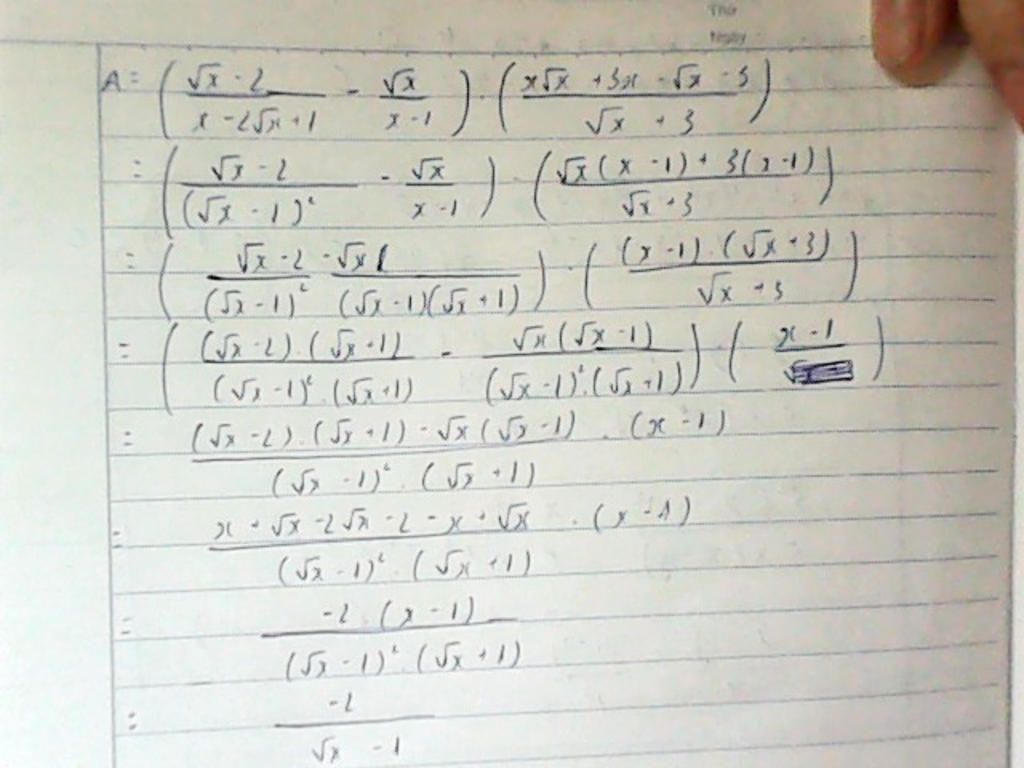 Thứ
Ngày
A = ( (√x - 2)/(x - 2√x + 1) - √x/(x - 1) ) . ( (x√x + 3x - √x - 3)/(√x + 3) )
= ( (√x - 2)/(√x - 1)² - √x/(x - 1) ) . ( (√x(x - 1) + 3(x - 1))/(√x + 3) )
= ( (√x - 2)/(√x - 1)² - √x/((√x - 1)(√x + 1)) ) . ( ((x - 1).(√x + 3))/(√x + 3) )
= ( ((√x - 2).(√x + 1))/((√x - 1)².(√x + 1)) - (√x(√x - 1))/((√x - 1)².(√x + 1)) ) . ( x - 1 )
= ((√x - 2).(√x + 1) - √x(√x - 1))/((√x - 1)².(√x + 1)) . (x - 1)
= (x + √x - 2√x - 2 - x + √x)/((√x - 1)².(√x + 1)) . (x - 1)
= (-2.(x - 1))/((√x - 1)².(√x + 1))
= -2/(√x - 1)